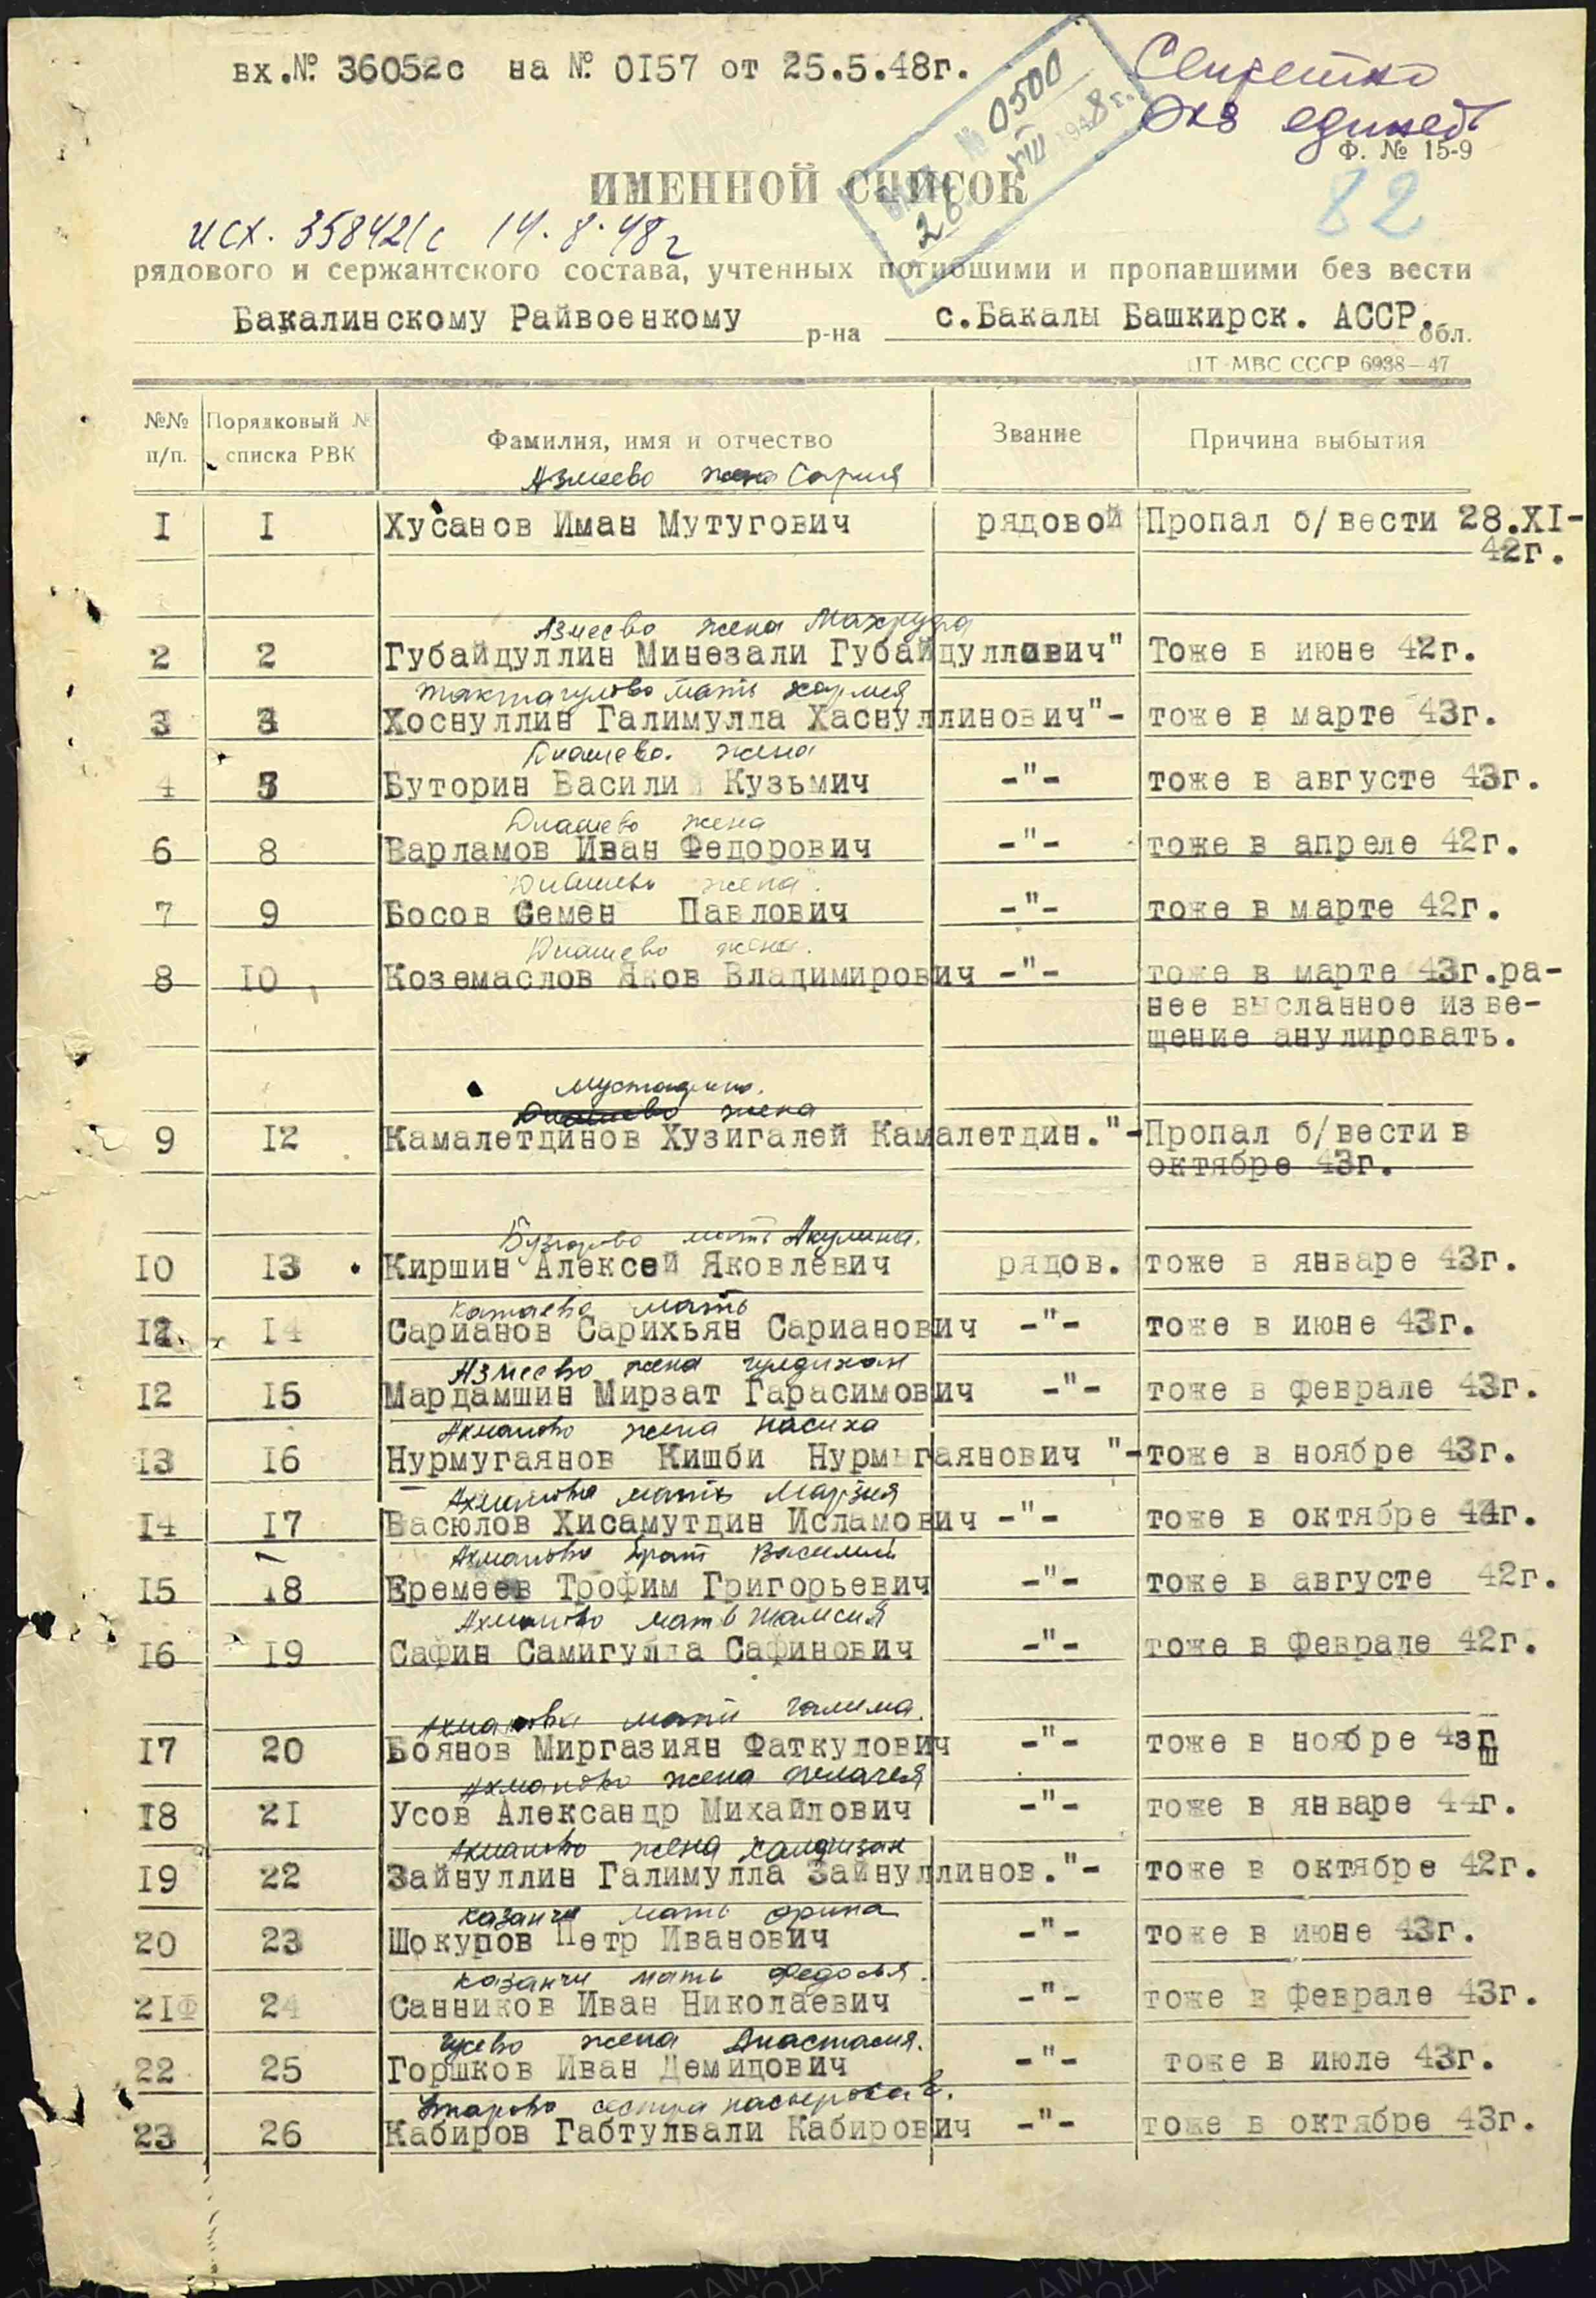 вх.№ 36052с на № 0157 от 25.5.48г.
Секретно
Экз единств
№ 0500
26 VIII 1948 г.
Ф. № 15-9
82
ИМЕННОЙ СПИСОК
исх. 358421с 14.8.48г
рядового и сержантского состава, учтенных погибшими и пропавшими без вести
Бакалинскому Райвоенкому р-на с.Бакалы Башкирск. АССР. обл.
ЦТ МВС СССР 6938—47
№№ п/п. Порядковый № списка РВК Фамилия, имя и отчество Звание Причина выбытия
Азмеево жена София
I I Хусанов Иман Мутугович рядовой Пропал б/вести 28.XI-
42г.
Азмеево жена Махруфа
2 2 Губайдуллин Минезали Губайдуллиевич" Тоже в июне 42г.
Тактагулово мать
3 3 Хоснуллин Галимулла Хаснуллинович"- тоже в марте 43г.
Диашево. жена
4 5 Буторин Василий Кузьмич -"- тоже в августе 43г.
Диашево жена
6 8 Варламов Иван Федорович -"- тоже в апреле 42г.
Диашево жена.
7 9 Босов Семен Павлович -"- тоже в марте 42г.
Диашево жена.
8 10 Коземаслов Яков Владимирович -"- тоже в марте 43г.ра-
нее высланное изве-
щение анулировать.
Мустафино.
Диашево жена
9 12 Камалетдинов Хузигалей Камалетдин."- Пропал б/вести в
октябре 43г.
мать Акулина.
10 13 Киршин Алексей Яковлевич рядов. тоже в январе 43г.
Катаево мать
12 14 Сарианов Сарихьян Сарианович -"- тоже в июне 43г.
Азмеево жена
12 15 Мардамшин Мирзат Гарасимович -"- тоже в феврале 43г.
Ахманово жена Насиха
13 16 Нурмугаянов Кишби Нурмыгаянович "- тоже в ноябре 43г.
Ахманово мать Марзия
14 17 Васюлов Хисамутдин Исламович -"- тоже в октябре 44г.
Ахманово брат Василий
15 18 Еремеев Трофим Григорьевич -"- тоже в августе 42г.
Ахманово мать Шамсия
16 19 Сафин Самигулла Сафинович -"- тоже в феврале 42г.
Ахманово мать Галима.
17 20 Боянов Миргазиян Фаткулович -"- тоже в ноябре 43г
Ш
Ахманово жена Пелагея
18 21 Усов Александр Михайлович -"- тоже в январе 44г.
Ахманово жена
19 22 Зайнуллин Галимулла Зайнуллинов."- тоже в октябре 42г.
Казанчи мать Орина
20 23 Шокуров Петр Иванович -"- тоже в июне 43г.
Казанчи мать Федосья.
21Ф 24 Санников Иван Николаевич -"- тоже в феврале 43г.
Гусево жена Анастасия.
22 25 Горшков Иван Демидович -"- тоже в июле 43г.
сестра
23 26 Кабиров Габтулвали Кабирович -"- тоже в октябре 43г.